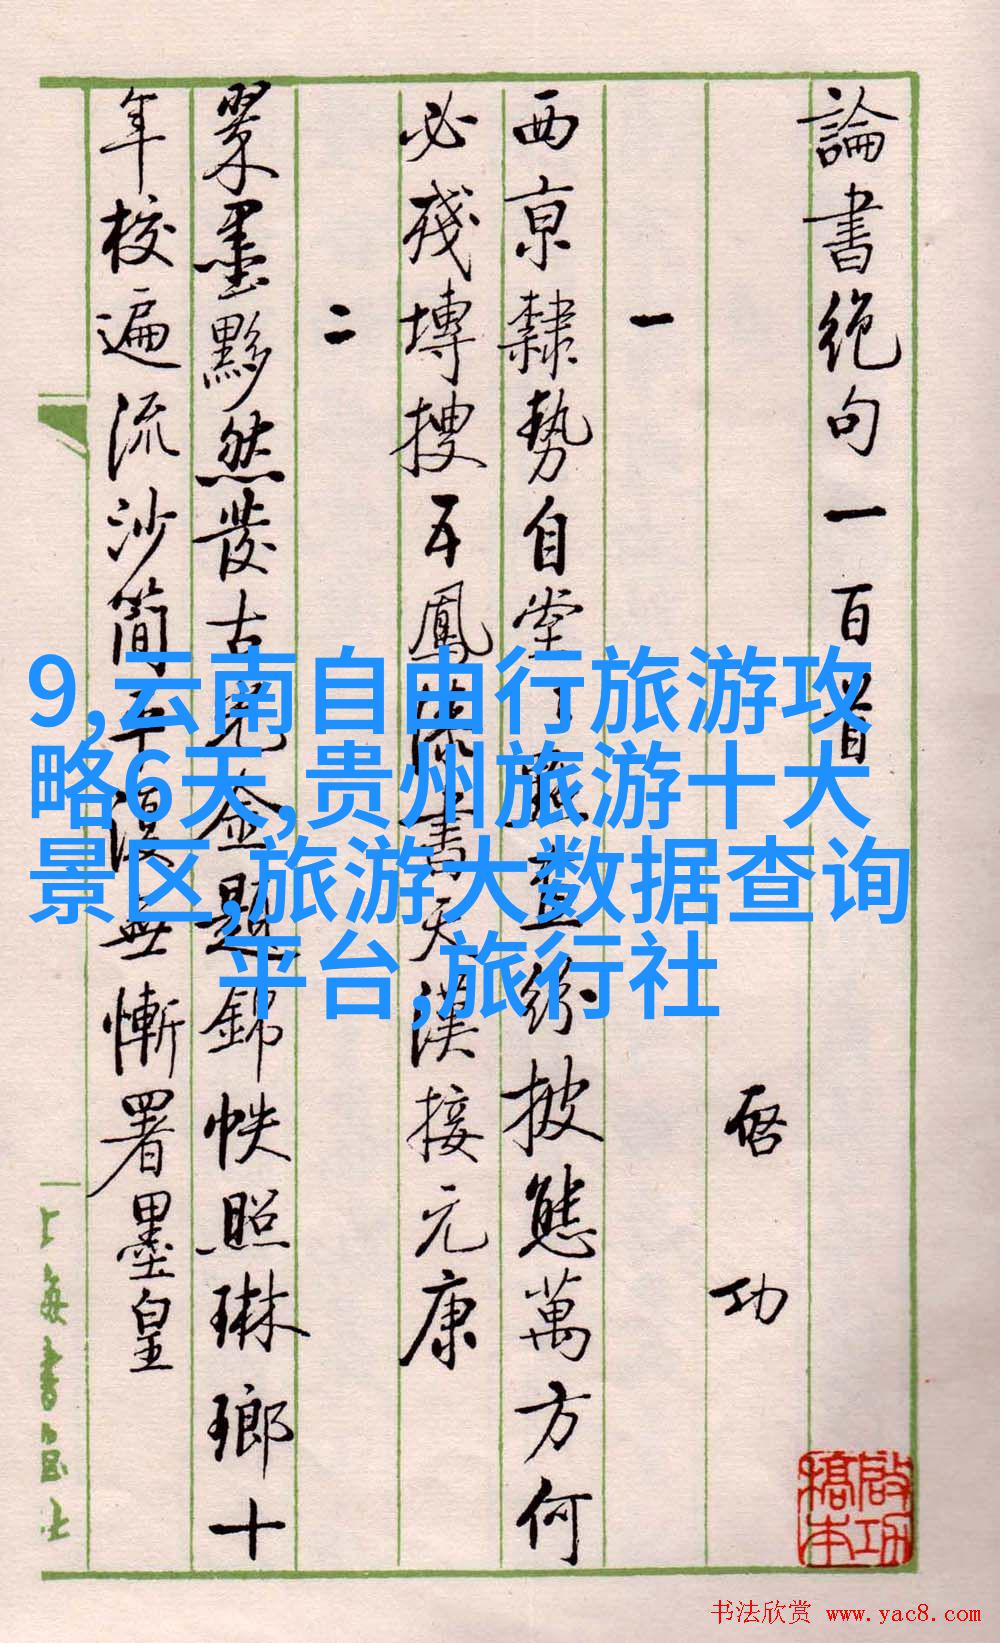 論書絶句一百首
啓功
一
西京隸勢自堂〻點畫紛披態萬方何
必殘塼搜五鳳漆書天漢接元康
二
翠墨黟然發古光金題錦帙照琳瑯十
年校遍流沙簡平復無慚署墨皇
上海書畫社
啟功
稿本
9,云南自由行旅游攻
略6天,贵州旅游十大
景区,旅游大数据查询
平台,旅行社
书法欣赏 www.yac8.com